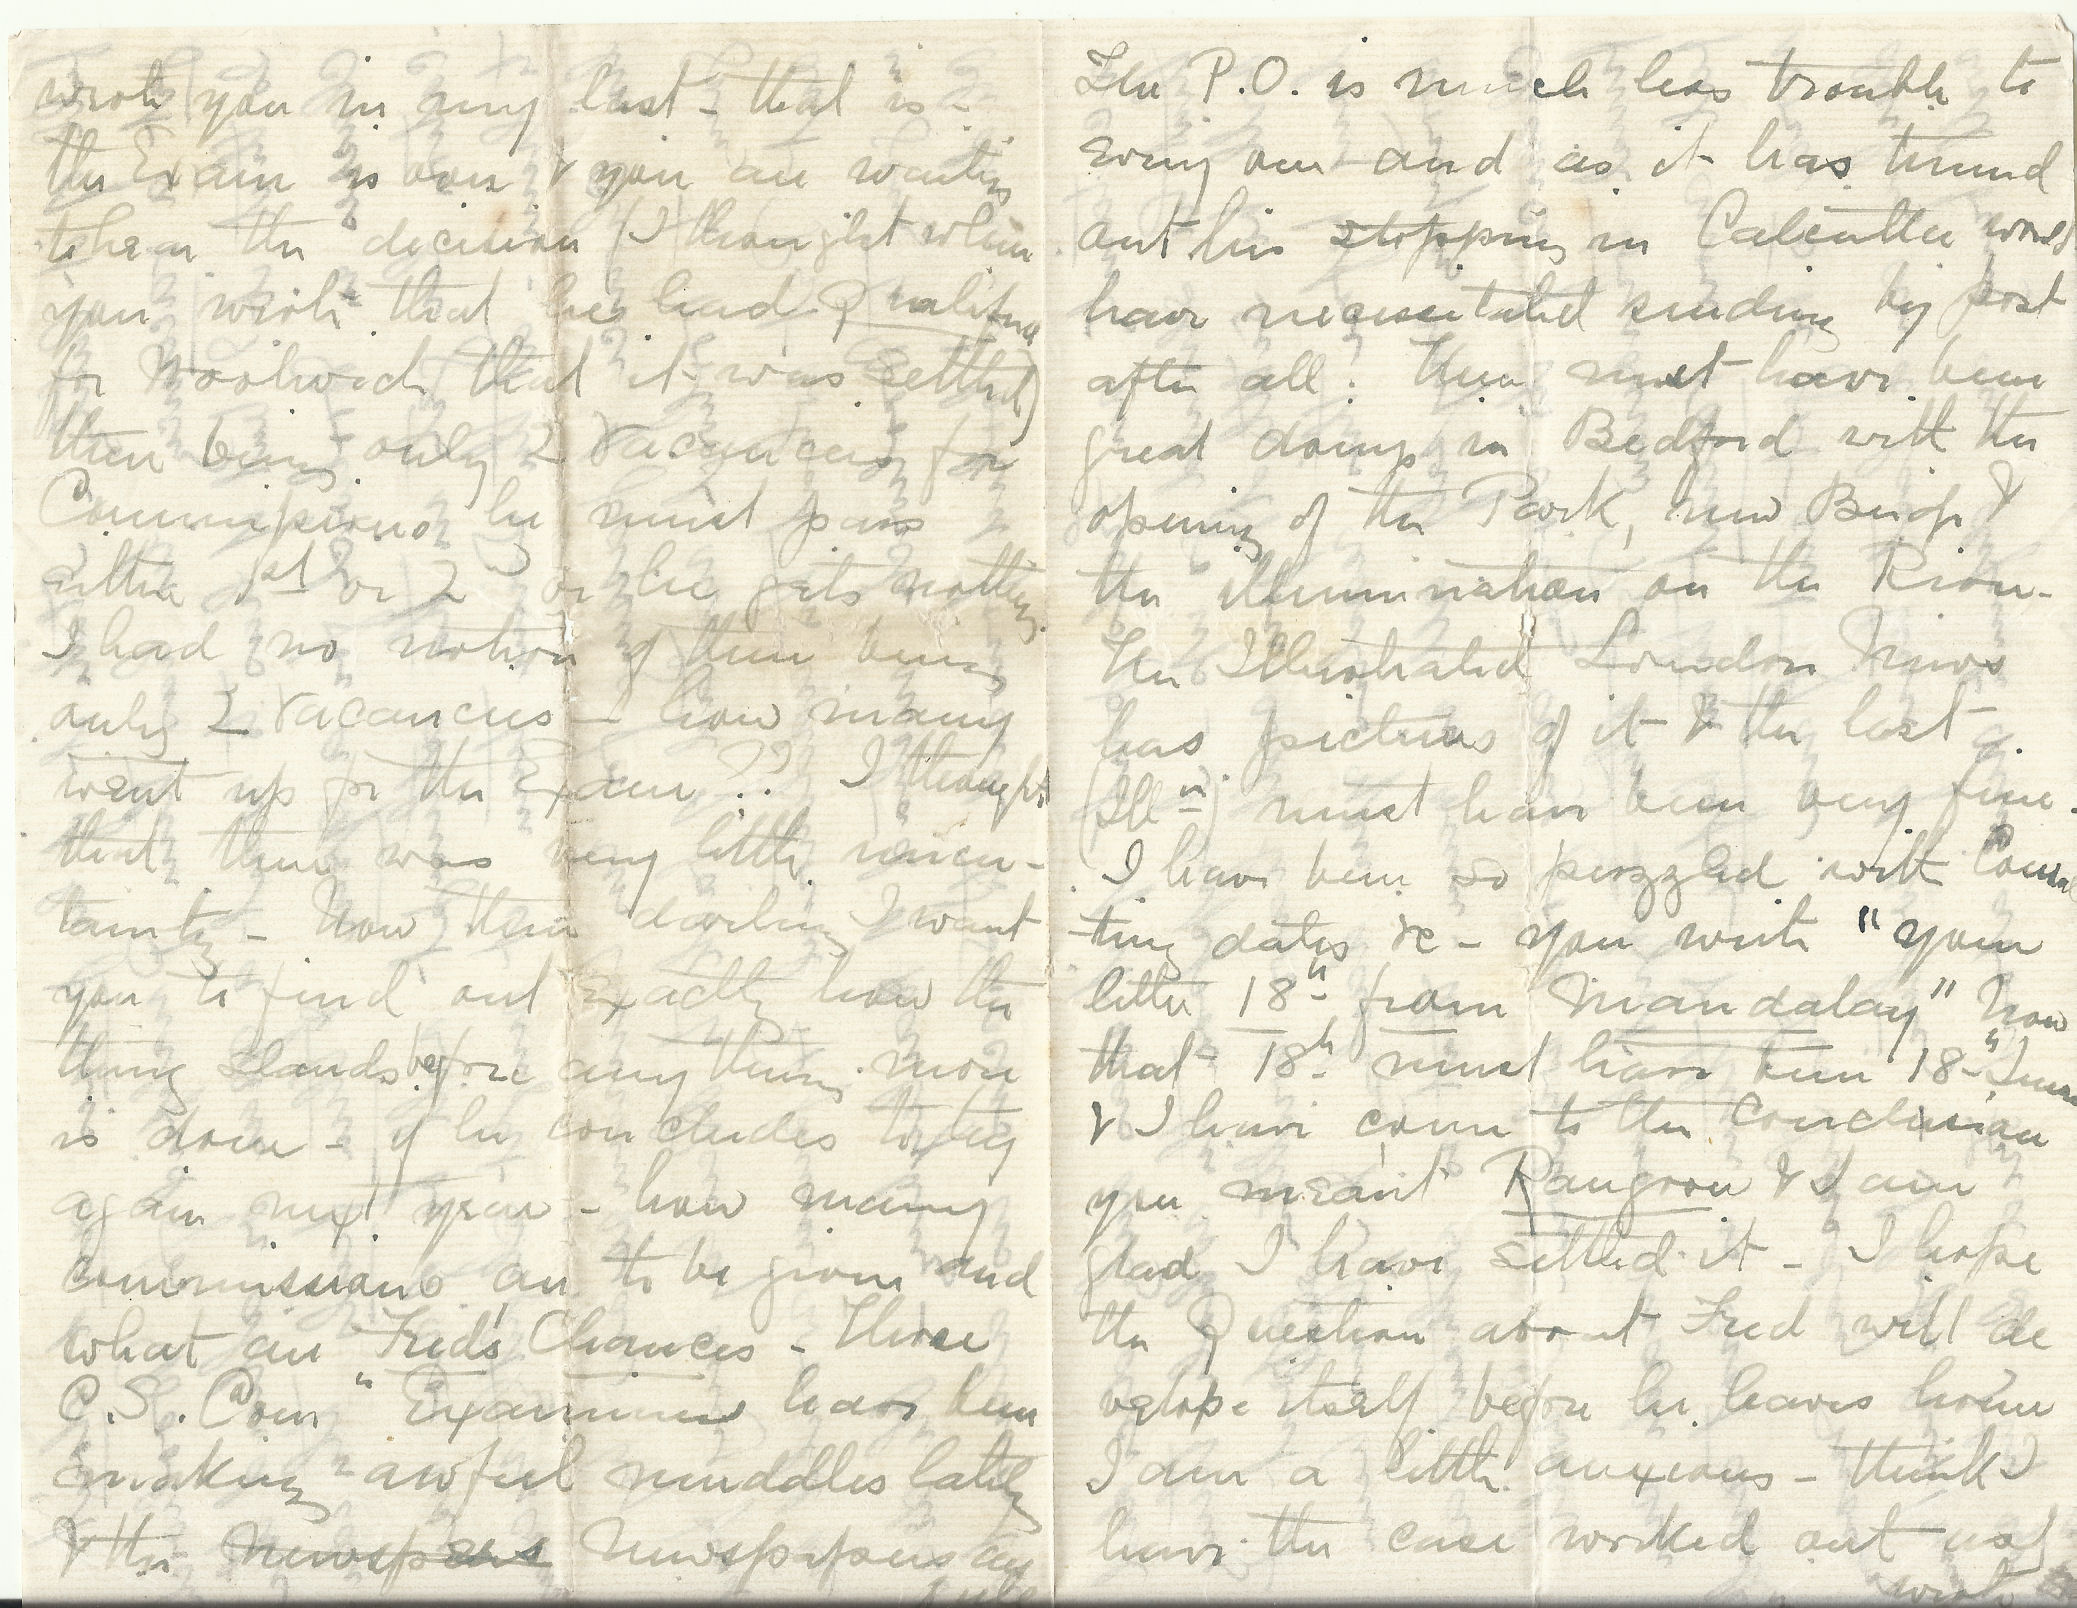 wrote you in my last - that is -
the Exam is over & you are waiting
to hear the decision (I thought when
you wrote that he had Qualified
for Woolwich that it was settled)
there being only 2 vacancies for
Commissions he must pass
either 1st or 2 or he gets nothing.
I had no notion of there being
only 2 vacancies - how many
went up for the Exam ?? I thought
that there was very little uncer-
tainty - Now then darling I want
you to find out Exactly how the
thing stands before anything more
is done - if he concludes to try
again next year - how many
commissions are to be given and
what are Fred's Chances - These
C.S. Com" Examiners have been
making awful muddles lately
& the Newspears Newspapers are
full
The P.O. is much less trouble to
every one and as it has turned
out his stopping in Calcutta would
have necessitated sending by post
after all! There must have been
great doings in Bedford with the
opening of the Park, new Bridge &
the illumination on the River -
The Illustrated London News
has pictures of it & the last
(Illn) must have been very fine.
I have been so puzzled with Connec
ting dates &c - you write "your
letter 18th from Mandalay" Now
that 18th must have been 18th June
& I have come to the conclusion
you meant Rangoon & I am
glad I have settled it - I hope
the Question about Fred will de
velope itself before he leaves home
I am a little anxious - think I
have the case worked out as I
wrote